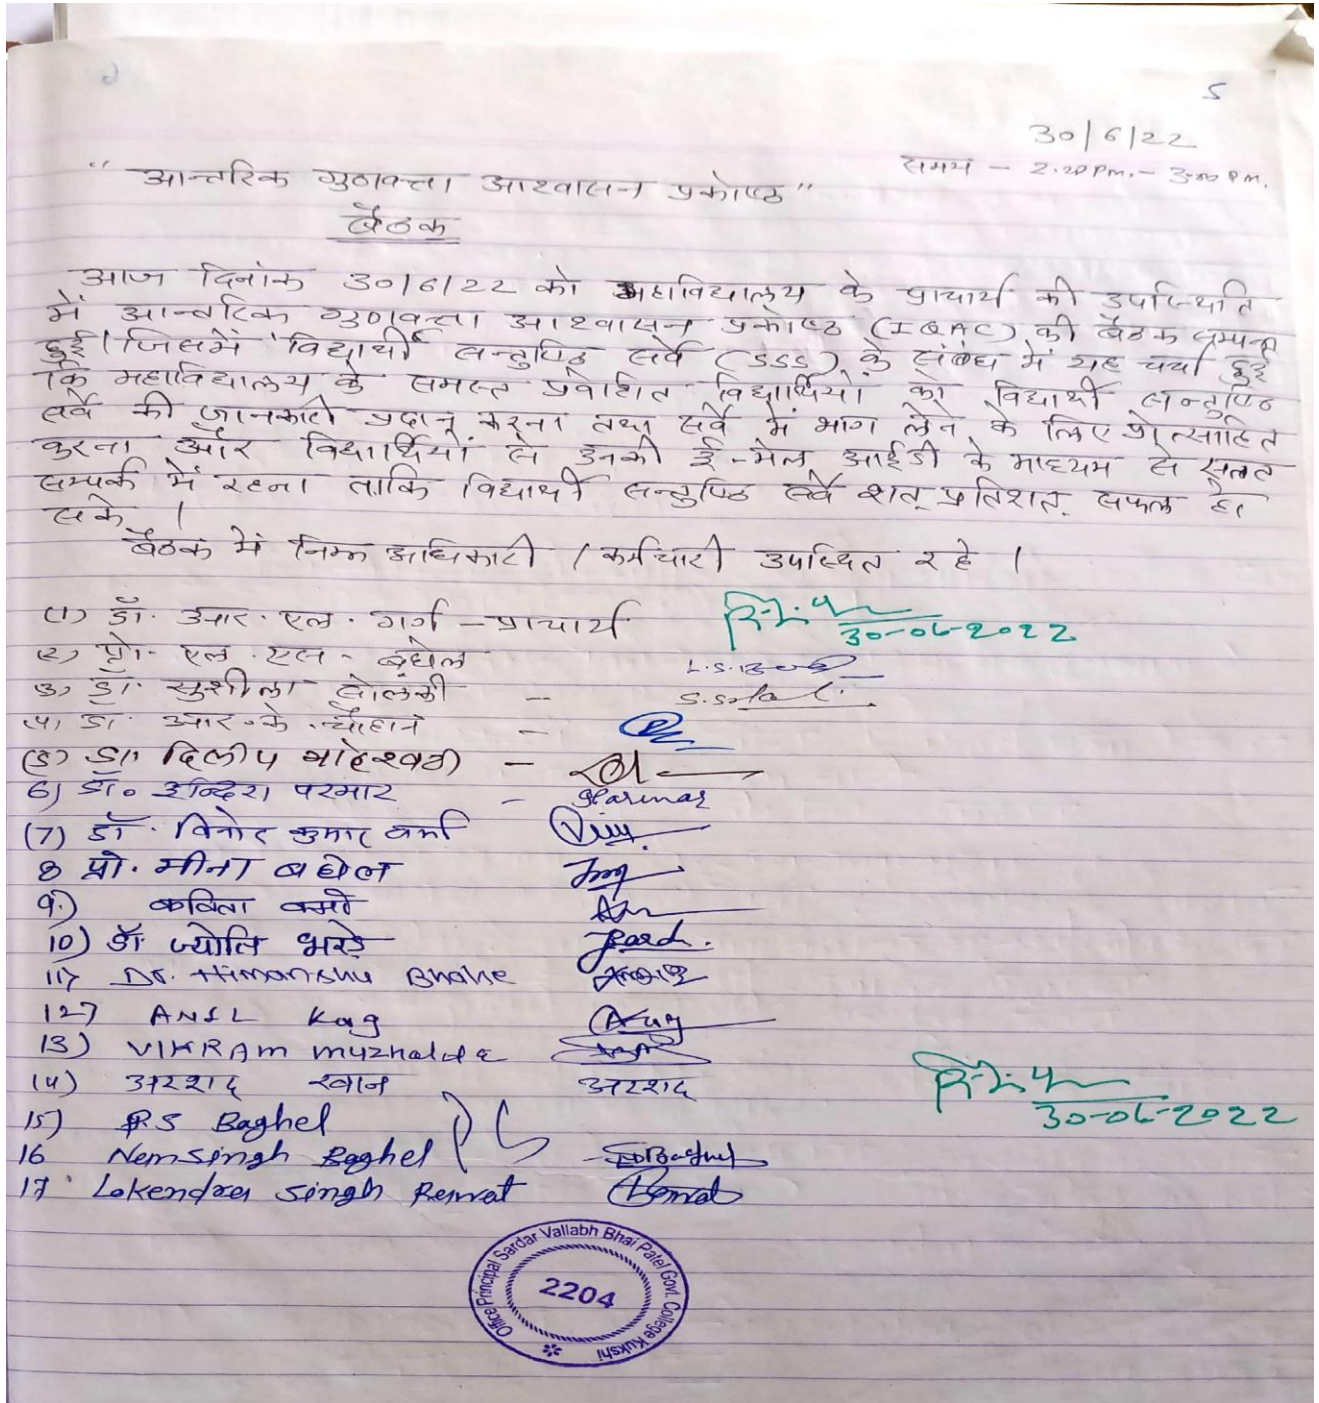 5
30/6/22
समय - 2:20 Pm. - 3:00 P.M.
" आन्तरिक गुणवत्ता आश्वासन प्रकोष्ठ "
बैठक
आज दिनांक 30/6/22 को महाविद्यालय के प्राचार्य की उपस्थिति
में आन्तरिक गुणवत्ता आश्वासन प्रकोष्ठ (IQAC) की बैठक सम्पन्न
हुई। जिसमें 'विद्यार्थी सन्तुष्टि सर्वे (SSS) के संबंध में यह चर्चा हुई
कि महाविद्यालय के समस्त प्रवेशित विद्यार्थियों को विद्यार्थी सन्तुष्टि
सर्वे की जानकारी प्रदान करना तथा सर्वे में भाग लेने के लिए प्रोत्साहित
करना और विद्यार्थियों से उनकी ई-मेल आईडी के माध्यम से सतत
सम्पर्क में रहना ताकि विद्यार्थी सन्तुष्टि सर्वे शत् प्रतिशत् सफल हो
सके।
बैठक में निम्न अधिकारी / कर्मचारी उपस्थित रहे।
(1) डॉ. आर. एल. गर्ग - प्राचार्य
30-06-2022
(2) प्रो. एल. एस. बघेल
(3) डॉ. सुशीला सोलंकी - S. Solanki
(4) डॉ. आर. के. चौहान -
(5) डॉ. दिलीप माहेश्वरी -
6) डॉ. इन्दिरा परमार - Parmar
(7) डॉ. विनोद कुमार वर्मा
8 प्रो. मीना बघेल
9.) कविता वर्मा
10) डॉ. ज्योति भरडे
11) Dr. Himanshu Bhahe
12) ANIL Kag Kag
13) VIKRAM Muzhalde
(14) अरशद खान अरशद
15) R.S Baghel
16 Nemsingh Baghel Baghel
17 Lokendra Singh Rewat Rewat
30-06-2022
Office Principal Sardar Vallabh Bhai Patel Govt. College Kukshi
2204